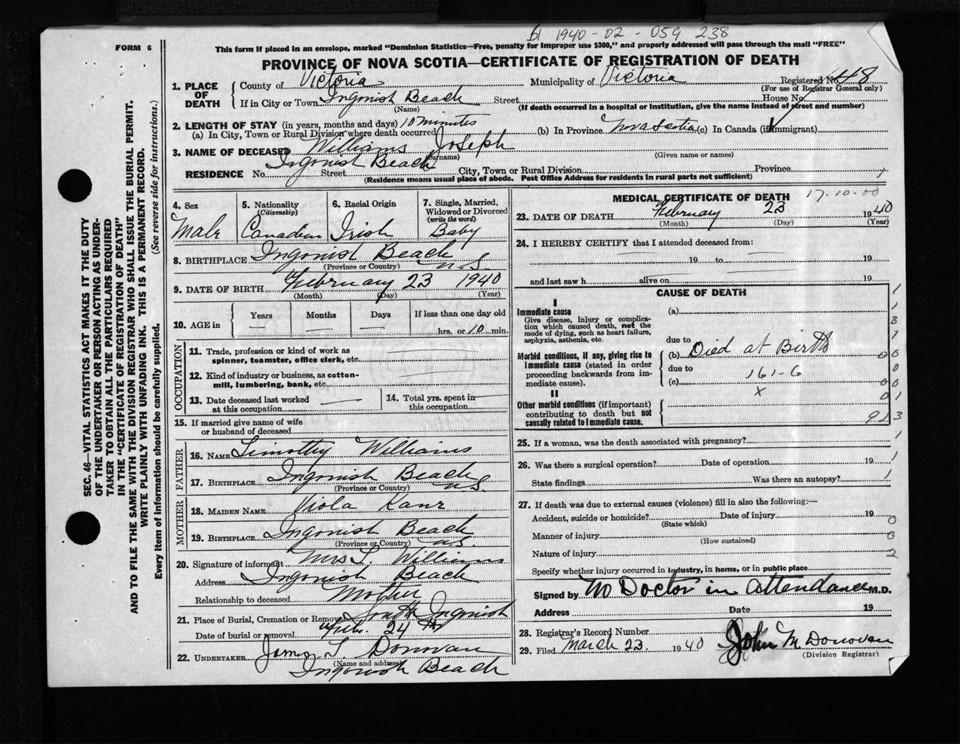 bl 1940-02-059 238
FORM 6
This form if placed in an envelope, marked "Dominion Statistics—Free, penalty for improper use $300," and properly addressed will pass through the mail "FREE"
PROVINCE OF NOVA SCOTIA—CERTIFICATE OF REGISTRATION OF DEATH
1. PLACE OF DEATH County of Victoria Municipality of Victoria Registered No. 48
(For use of Registrar General only)
If in City or Town Ingonish Beach Street House No.
(Name) (If death occurred in a hospital or institution, give the name instead of street and number)
2. LENGTH OF STAY (in years, months and days) 10 minutes
(a) In City, Town or Rural Division where death occurred (b) In Province Nova Scotia (c) In Canada (if immigrant)
3. NAME OF DECEASED Williams Joseph
(Surname) (Given name or names)
RESIDENCE No. Ingonish Beach Street City, Town or Rural Division Province
(Residence means usual place of abode. Post Office Address for residents in rural parts not sufficient)
4. Sex 5. Nationality (Citizenship) 6. Racial Origin 7. Single, Married, Widowed or Divorced (write the word)
Male Canadian Irish Baby
8. BIRTHPLACE Ingonish Beach N.S.
(Province or Country)
9. DATE OF BIRTH February 23 1940
(Month) (Day) (Year)
10. AGE in Years Months Days If less than one day
hrs. or 10 min.
OCCUPATION
11. Trade, profession or kind of work as spinner, teamster, office clerk, etc.
12. Kind of industry or business, as cotton-mill, lumbering, bank, etc.
13. Date deceased last worked at this occupation 14. Total yrs. spent in this occupation
15. If married give name of wife or husband of deceased
FATHER
16. NAME Timothy Williams
17. BIRTHPLACE Ingonish Beach N.S.
(Province or Country)
MOTHER
18. MAIDEN NAME Viola
19. BIRTHPLACE Ingonish Beach N.S.
(Province or Country)
20. Signature of informant Mrs T. Williams
Address Ingonish Beach
Relationship to deceased Mother
21. Place of Burial, Cremation or Removal South Ingonish
Date of burial or removal Feb. 24 th
22. UNDERTAKER James T. Donovan
(Name and address)
Ingonish Beach
MEDICAL CERTIFICATE OF DEATH 17-10-00
23. DATE OF DEATH February 23 1940
(Month) (Day) (Year)
24. I HEREBY CERTIFY that I attended deceased from:
19 to 19
and last saw h alive on 19
CAUSE OF DEATH
I
Immediate cause (a)
Give disease, injury or complication which caused death, not the mode of dying, such as heart failure, asphyxia, asthenia, etc.
due to
Morbid conditions, if any, giving rise to immediate cause (stated in order proceeding backwards from immediate cause). (b) Died at Birth
due to 161-6
(c) x
II
Other morbid conditions (if important) contributing to death but not causally related to immediate cause.
25. If a woman, was the death associated with pregnancy?
26. Was there a surgical operation? Date of operation 19
State findings Was there an autopsy?
27. If death was due to external causes (violence) fill in also the following:—
Accident, suicide or homicide? Date of injury 19
(State which)
Manner of injury
(How sustained)
Nature of injury
Specify whether injury occurred in industry, in home, or in public place
Signed by No Doctor in attendance M.D.
Address Date 19
28. Registrar's Record Number
29. Filed March 23, 1940 John M Donovan
(Division Registrar)
SEC. 46—VITAL STATISTICS ACT MAKES IT THE DUTY
OF THE UNDERTAKER OR PERSON ACTING AS UNDERTAKER
TO OBTAIN ALL THE PARTICULARS REQUIRED
IN THE "CERTIFICATE OF REGISTRATION OF DEATH"
AND TO FILE THE SAME WITH THE DIVISION REGISTRAR WHO SHALL ISSUE THE BURIAL PERMIT.
WRITE PLAINLY WITH UNFADING INK. THIS IS A PERMANENT RECORD.
Every item of Information should be carefully supplied. (See reverse side for instructions.)